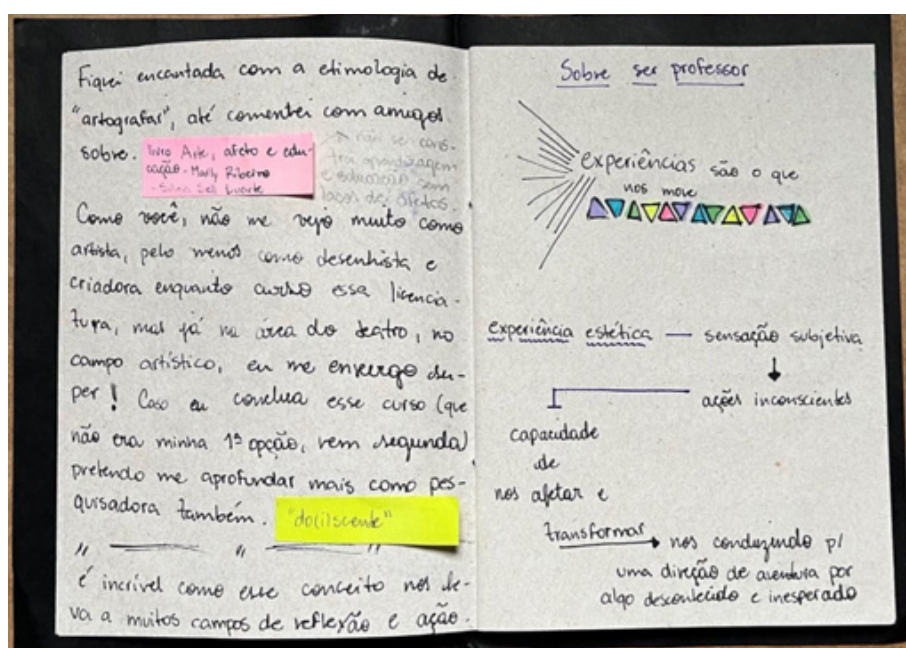 Fiquei encantada com a etimologia de
"artografar", até comentei com amigos
sobre.
livro Arte, afeto e edu-
cação - Marly Ribeiro
não se cons-
trói aprendizagem
e educação sem
laços de afetos.
Como você, não me vejo muito como
artista, pelo menos como desenhista e
criadora enquanto curso essa licencia-
tura, mas já na área do teatro, no
campo artístico, eu me enxergo su-
per! Caso eu conclua esse curso (que
não era minha 1ª opção, nem segunda)
pretendo me aprofundar mais como pes-
quisadora também.
"do(i)scente"
" "  "
é incrível como esse conceito nos le-
va a muitos campos de reflexão e ação.
Sobre ser professor
experiências são o que
nos move
experiência estética — sensação subjetiva
ações inconscientes
capacidade
de
nos afetar e
transformar nos conduzindo p/
uma direção de aventura por
algo desconhecido e inesperado